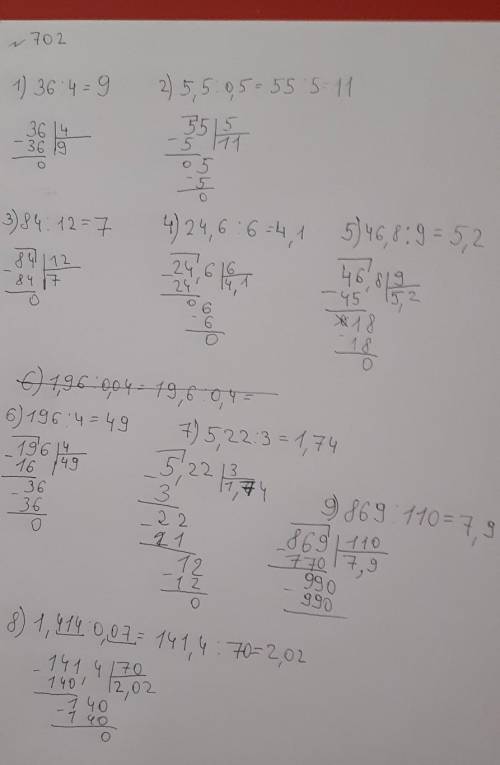 № 702
1) 36 : 4 = 9
36 | 4
- 36 | 9
0
2) 5,5 : 0,5 = 55 : 5 = 11
55 | 5
- 5 | 11
05
- 5
0
3) 84 : 12 = 7
- 84 | 12
84 | 7
0
4) 24,6 : 6 = 4,1
- 24,6 | 6
24 | 4,1
06
- 6
0
5) 46,8 : 9 = 5,2
46,8 | 9
- 45 | 5,2
18
- 18
0
6) 1,96 : 0,04 = 19,6 : 0,4 =
6) 196 : 4 = 49
- 196 | 4
16 | 49
- 36
36
0
7) 5,22 : 3 = 1,74
- 5,22 | 3
3 | 1,74
- 22
21
12
- 12
0
9) 869 : 110 = 7,9
- 869 | 110
770 | 7,9
- 990
990
8) 1,414 : 0,07 = 141,4 : 70 = 2,02
- 141,4 | 70
140, | 2,02
- 140
140
0